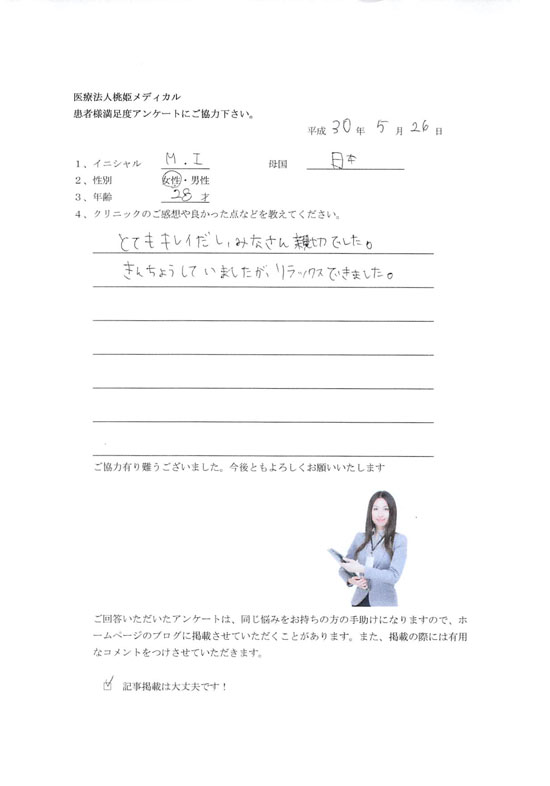 医療法人桃姫メディカル
患者様満足度アンケートにご協力下さい。
平成 30 年 5 月 26 日
1、イニシャル M.I 母国 日本
2、性別 女性・男性
3、年齢 28 才
4、クリニックのご感想や良かった点などを教えてください。
とてもキレイだし、みなさん親切でした。
きんちょうしていましたが、リラックスできました。
ご協力有り難うございました。今後ともよろしくお願いいたします
ご回答いただいたアンケートは、同じ悩みをお持ちの方の手助けになりますので、ホ
ームページのブログに掲載させていただくことがあります。また、掲載の際には有用
なコメントをつけさせていただきます。
☑ 記事掲載は大丈夫です！